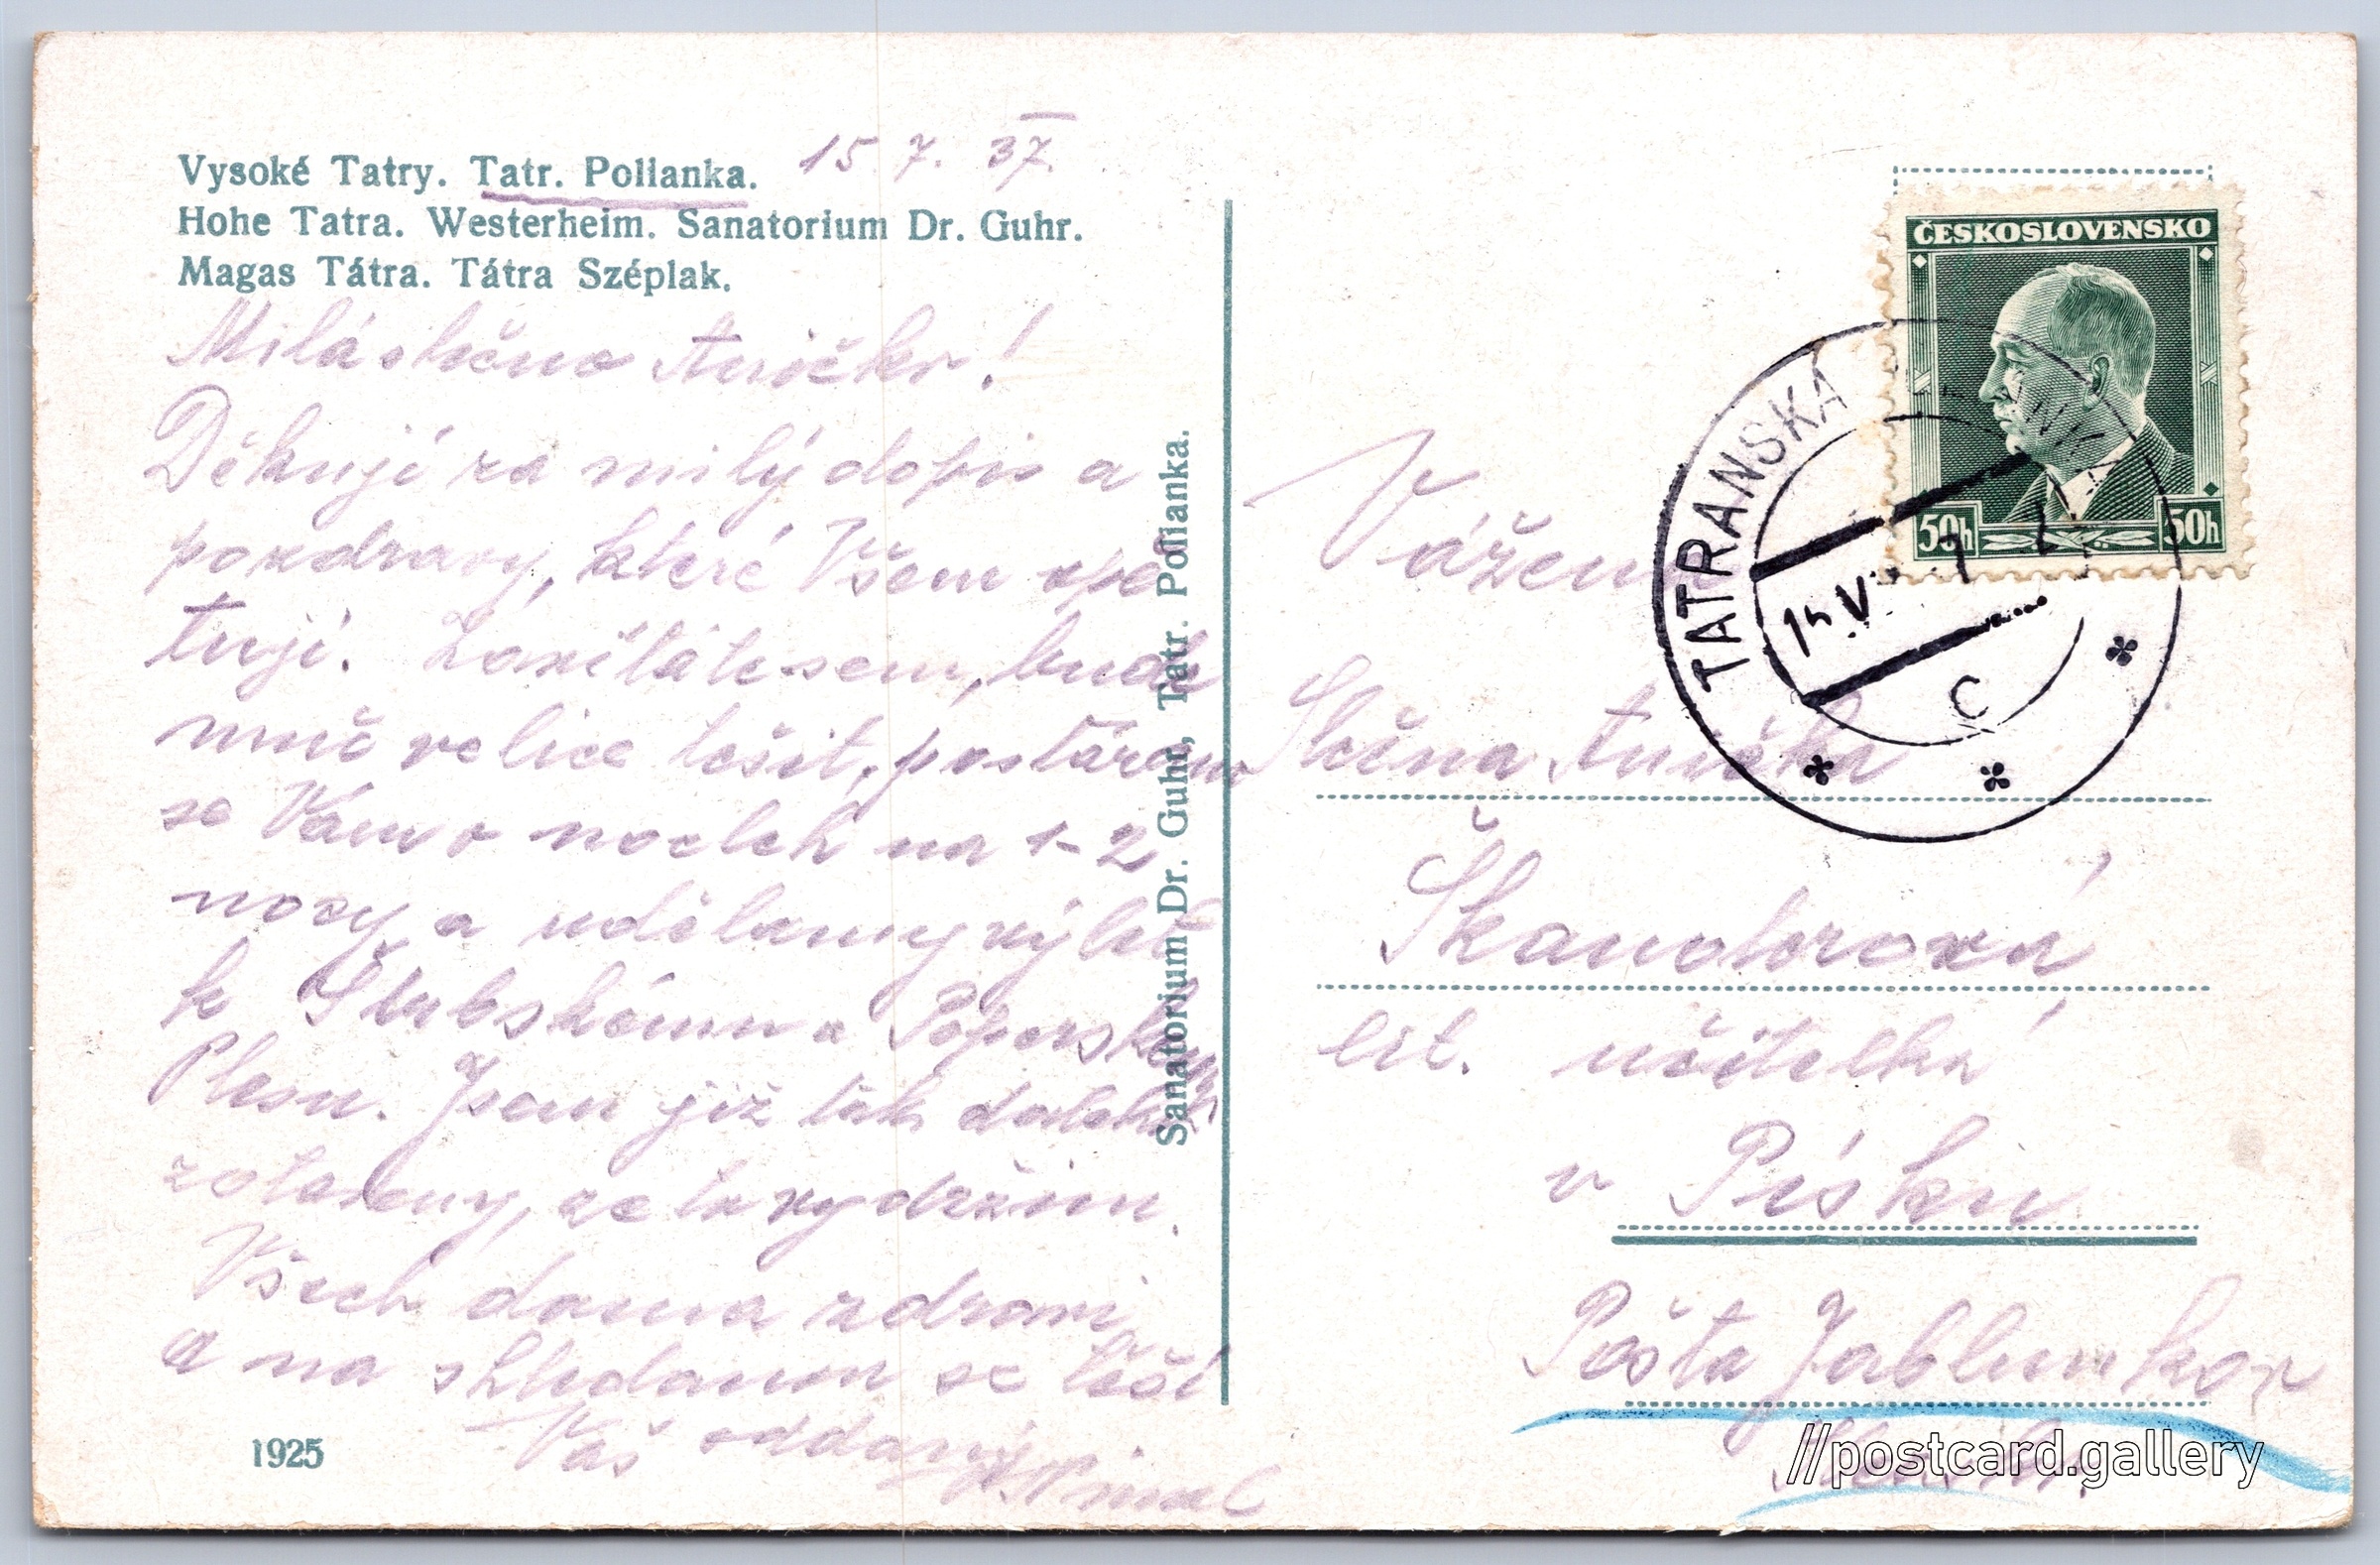 Vysoké Tatry. Tatr. Polianka.
15. 7. 37.
Hohe Tatra. Westerheim. Sanatorium Dr. Guhr.
Magas Tátra. Tátra Széplak.
Milá slečno Aničko!
Děkuji za milý dopis a
pozdravy, které Všem opě
tuji. Zavítáte-sem, bude
mně velice těšit, postarám
se Vám o nocleh na 1-2
nocy a uděláme výlet
k Štrbskému a Popradskému
Plesu. Jsem již tak daleko
zotavený, že to vydržím.
Všech doma zdraví
a na shledanou se těší
Váš oddaný
1925
Sanatorium Dr. Guhr, Tatr. Polianka.
ČESKOSLOVENSKO
50h 50h
TATRANSKÁ
C
Vážená
Slečna Anička
Škandorová
lit. učitelka
v Písku
Pošta Jablunkov
//postcard.gallery